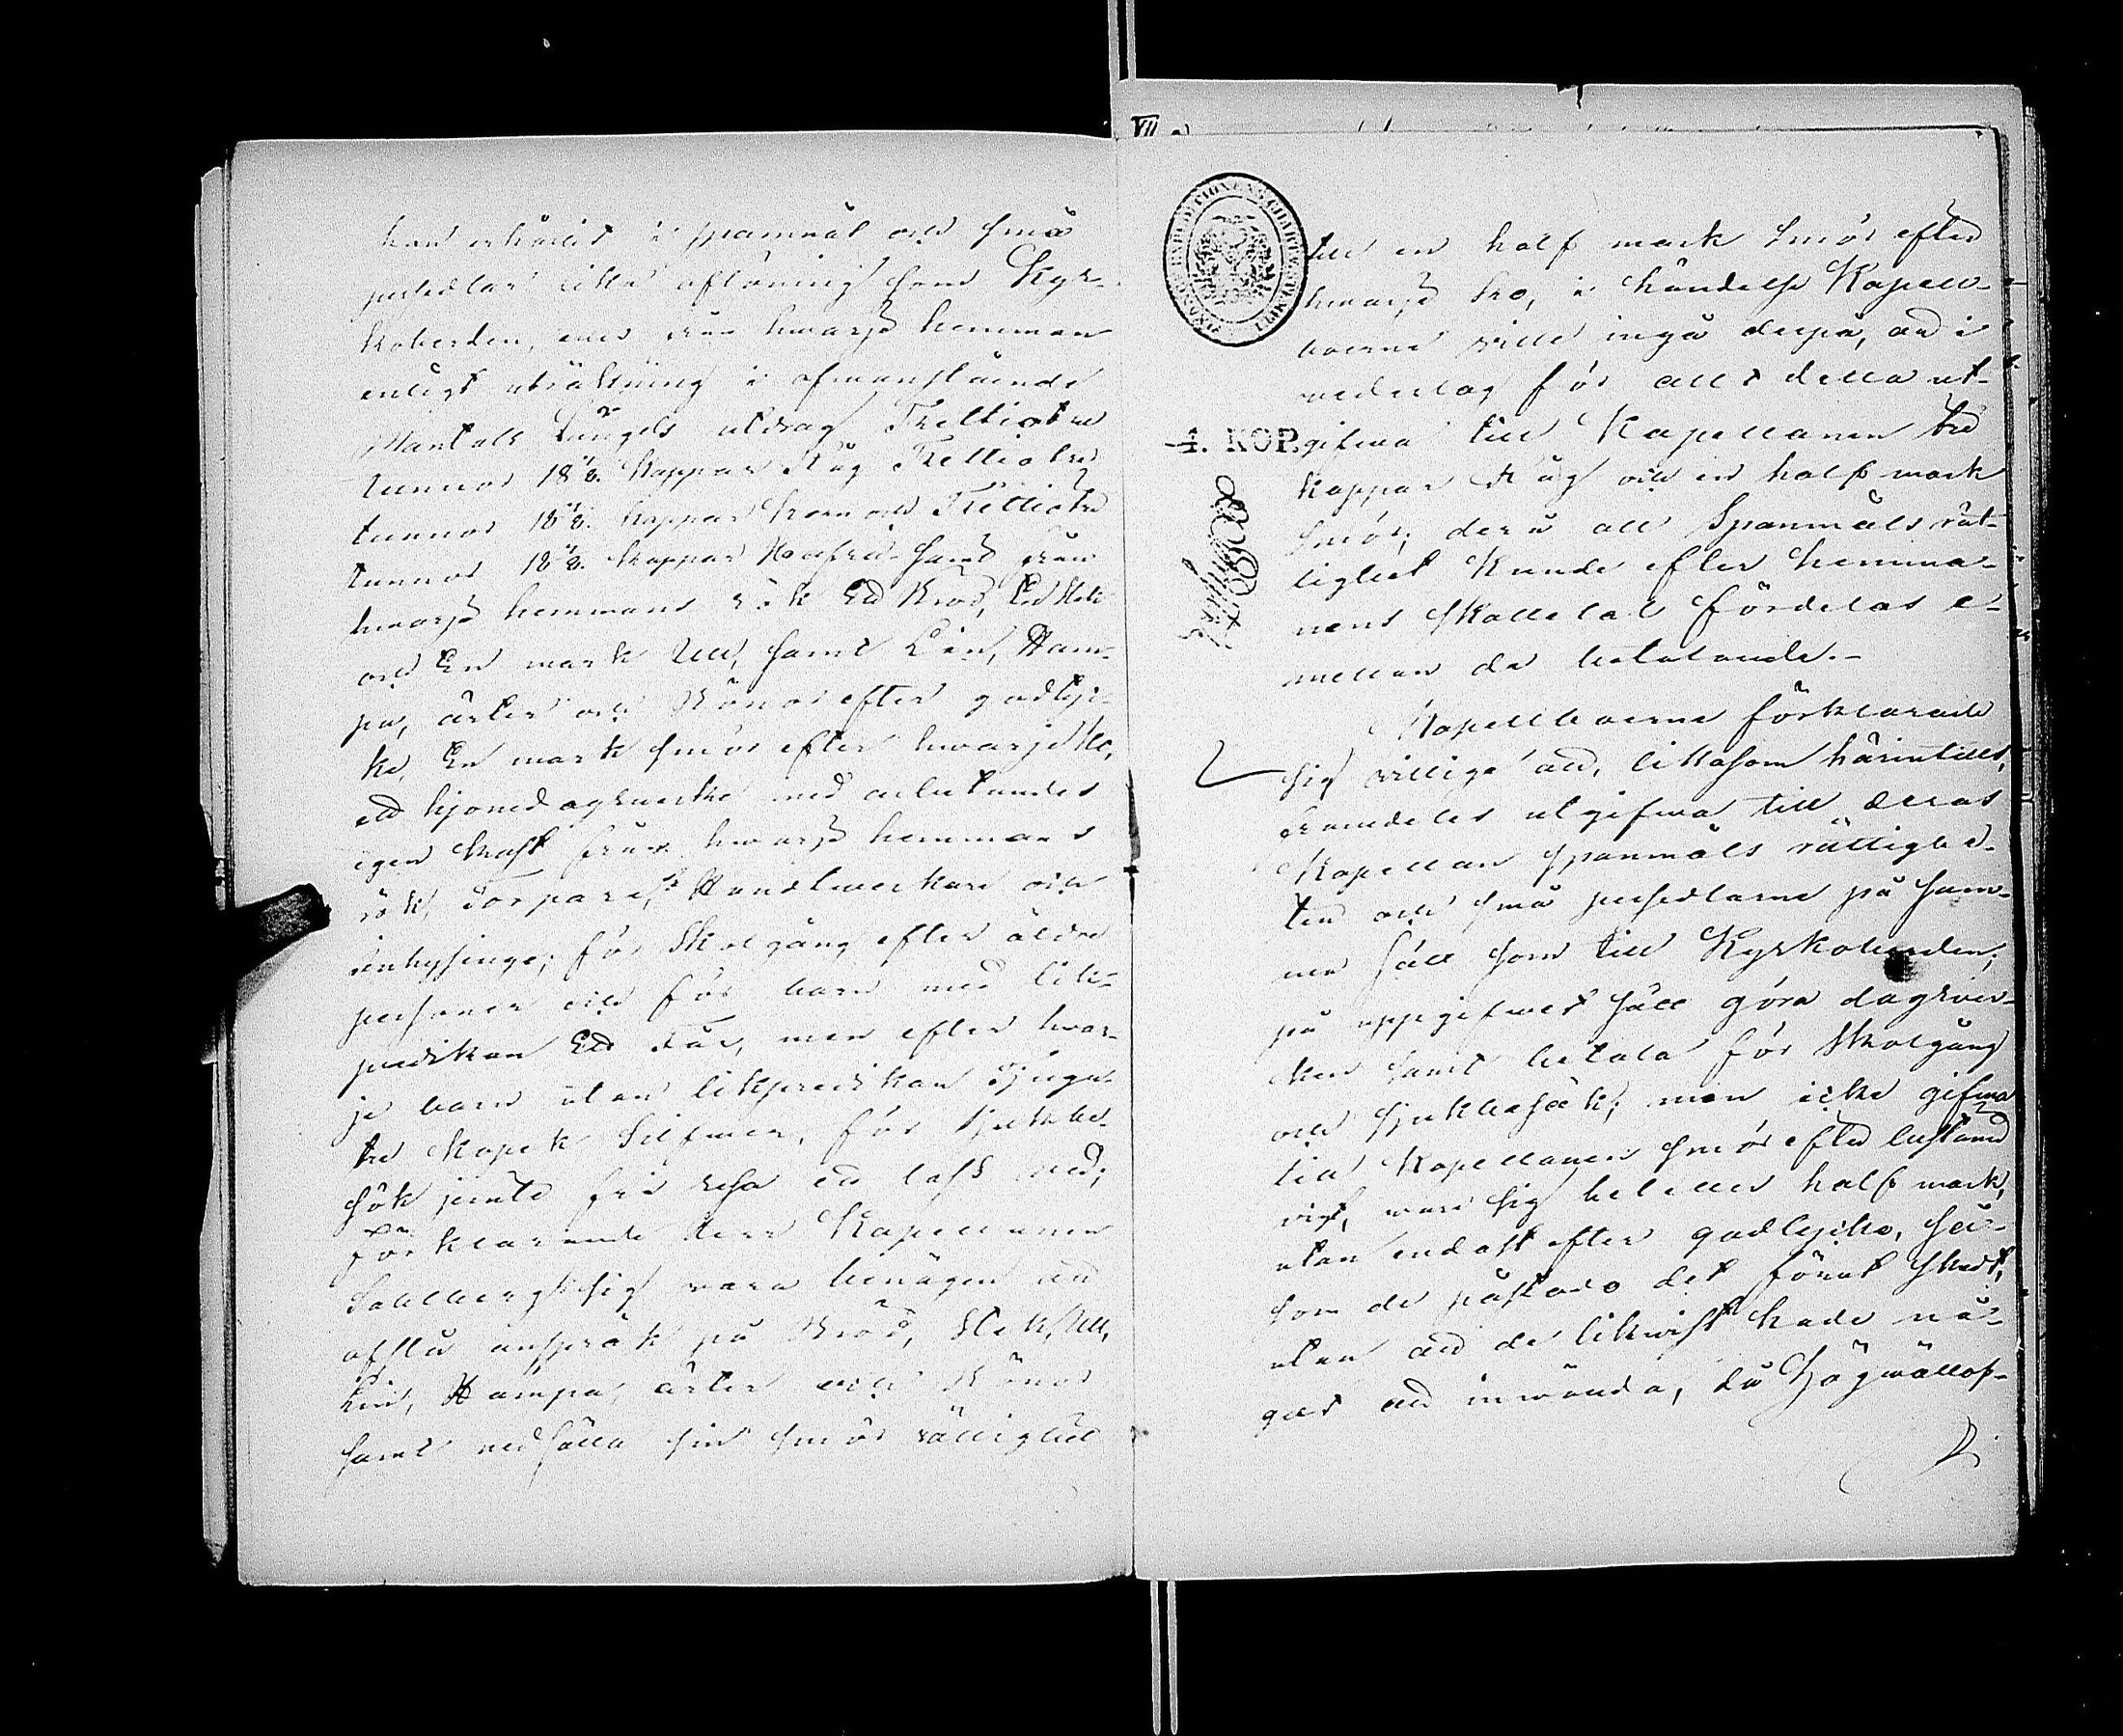 han erhållit i spannmål och små
persedlar lika aflöning som Kyr-
koherden, eller från hwarje hemman
enligt uträkning i ofwanstående
Mantals Längds utdrag Trettiotre
tunnor 18 1/8. kappar Råg Trettiotre
tunnor 18 1/8. kappar korn och Trettiotre
tunnor 18 1/8. kappar Hafra samt från
hwarje hemmans rök Ett Bröd, En Stek
och En mark Ull, samt Lin, Ham-
pa, ärter och Bönor efter godtyc-
ke, En mark smör efter hwarje Ko,
ett hjonedagswerke med arbetandes
egen kost från hwarje hemmans
rök, Torpare, Handtwerkare och
inhysinge; för Skolgång efter äldre
personer och för barn med lik-
predikan Ett Får, men efter hwar-
je barn utan likpredikan Tjugu-
tre Kopek Silfwer, för Sjukbe-
sök jemte fri resa ett lass wed;
förklarande Herr Kapellanen
Sahlberg sig wara benägen att
afstå anspråk på Bröd, Stek, Ull,
Lin, Hampa, ärter och Bönor
samt nedsätta sin smör rättighet
till en half mark Smör efter
hwarje Ko, i händelse Kapell-
boerne wille ingå derpå, att i
wederlag för allt detta ut-
4. KOP.
gifwa till Kapellanen två
kappar Råg och en half mark
Smör; derå all Spannmåls rät-
tighet kunde efter hemma-
nens skattetal fördelas e-
mellan de betalande.-
Kapellboerne förklarade
sig willige att, likasom härintills,
framdeles utgifwa till deras
Kapellan spannmåls rättighe-
ten och små persedlarne på sam-
ma sätt som till Kyrkoherden;
på uppgifwet sätt göra dagswer-
ken samt betala för Skolgång
och Sjukbesök; men icke gifwa
till Kapellanen smör efter bestämd
wigt, ware sig hel eller half mark,
utan endast efter godtycke, så-
som de påstodo det förut skedt,
utan att de likwist hade nå-
got att inwända, då Högwällof-